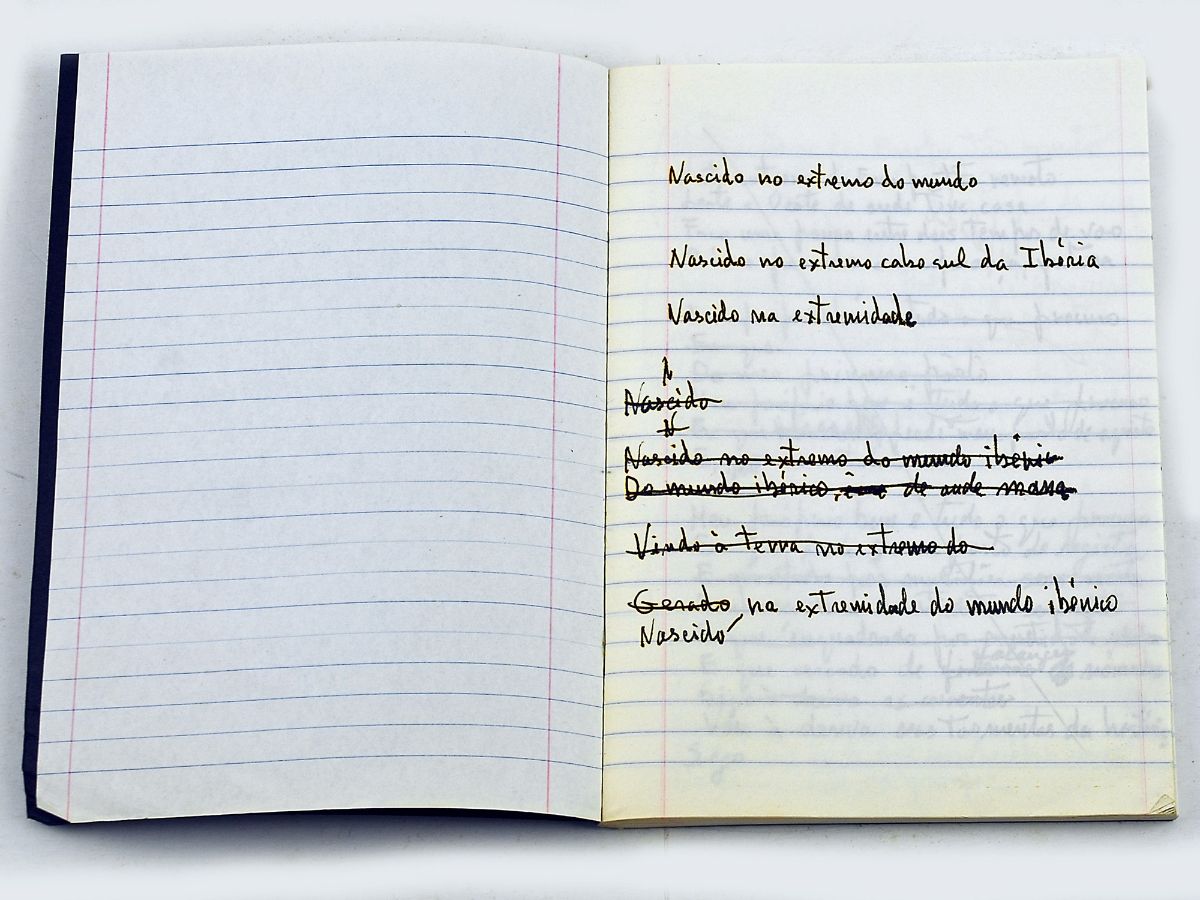 Nascido no extremo do mundo
Nascido no extremo cabo sul da Ibéria
Nascido na extremidade
N
Nascido
N
Nascido no extremo do mundo ibéric
Do mundo ibérico, de onde mana
Vindo à terra no extremo do
Gerado na extremidade do mundo ibérico
Nascido